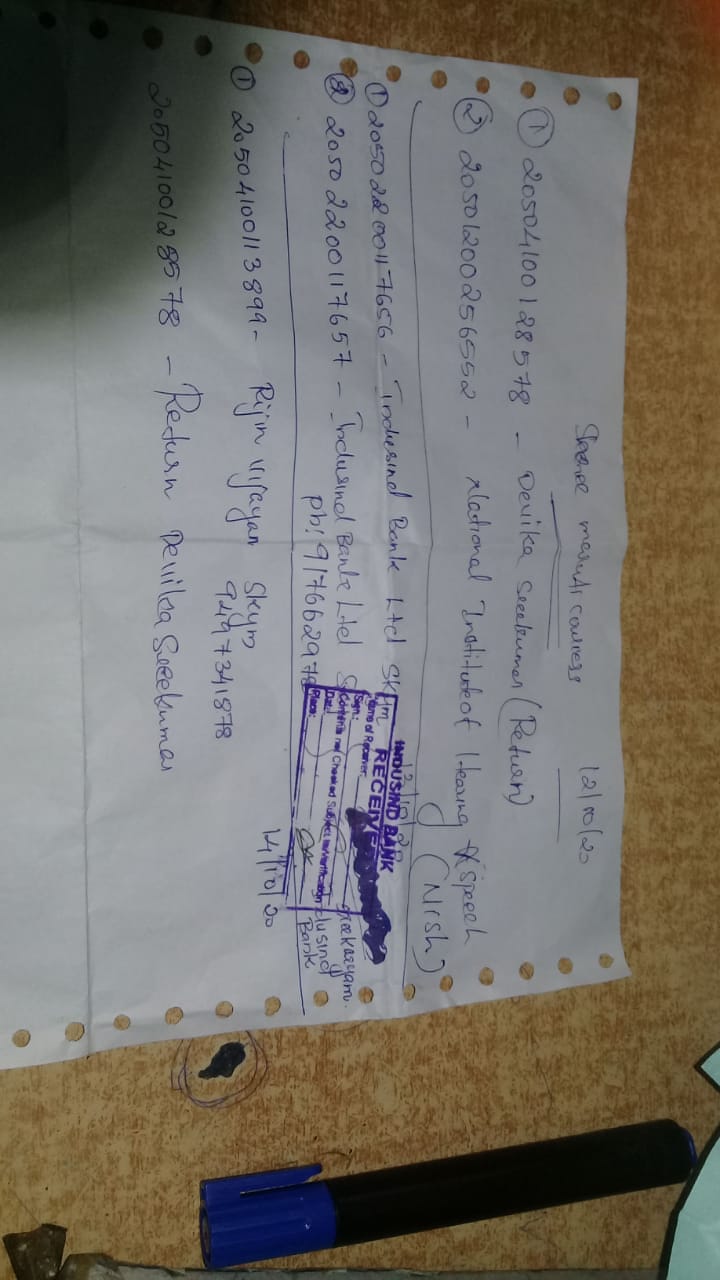 Shree maruti couriess 12/10/20
① 20504100128578 - Devika Sreekumar (Return)
② 20501200256552 - National Institute of Hearing & Speech
(Nish)
① 20502200117656 - Indusind Bank Ltd SKym
② 20502200117657 - Indusind Bank Ltd
ph: 917662978
INDUSIND BANK
RECEIVE
Name of Receiver:
Sign:
Contents not Checked Subject to Verification
Date:
Place:
sreekaryam.
dusind
Bank
14/10/20
① 20504100113899 - Rijin Vijayan Skym
9497341878
20504100128578 - Return Devika Sreekumar